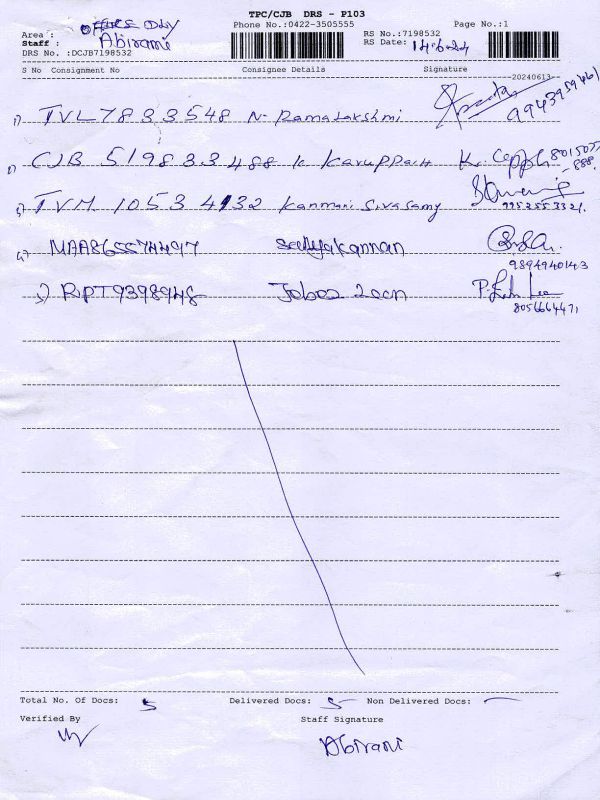 TPC/CJB DRS - P103
Phone No.:0422-3505555 Page No.:1
Area : Office DLY
Staff : Abirami
RS No.:7198532
RS Date: 14.6.24
DRS No. :DCJB7198532
S No Consignment No Consignee Details Signature
20240613
1) TVL7833548 N. Ramalakshmi 9943959461
2) CJB 519833488 K Karuppaih
3) TVM 10534132 Kanmani Sivasamy 9952553321
4) MAA865574497 Sathyakannan 9894940143
5) RPT9398948 Jobas Leon 8056664471
Total No. Of Docs: 5 Delivered Docs: 5 Non Delivered Docs: —
Verified By Staff Signature
Abirami